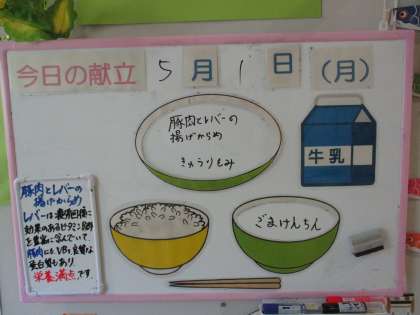 今日の献立 5月1日(月)
豚肉とレバーの
揚げからめ
きゅうりもみ
牛乳
ごまけんちん
豚肉とレバーの
揚げからめ
レバーは疲労回復に
効果のあるビタミンB群
を豊富に含んでいて、
豚肉にもVB1、良質な
蛋白質もあり
栄養満点です